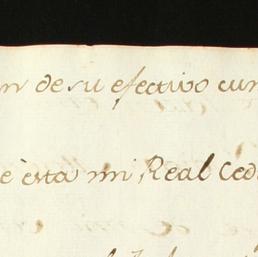 n de su efectivo cum
e èsta mi Real Ced